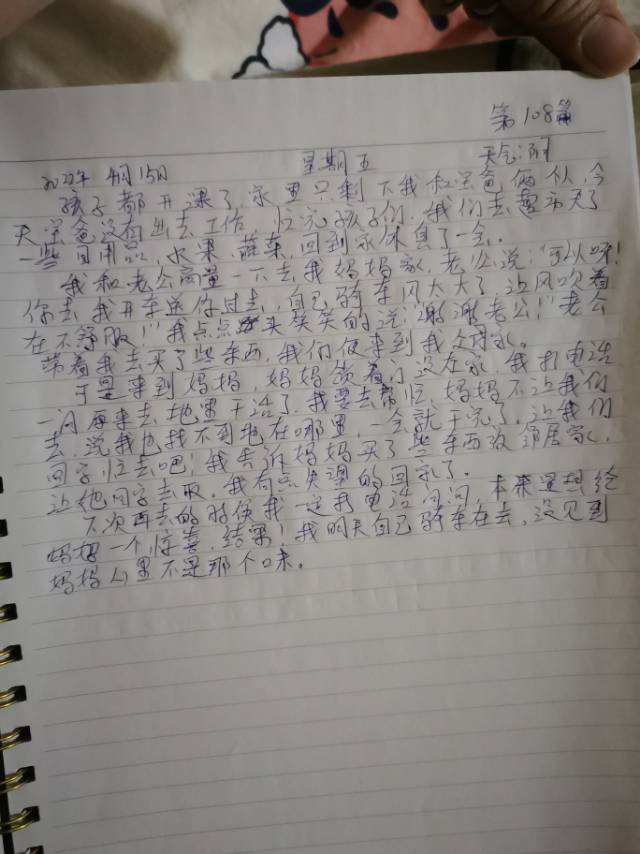 第108篇
2022年4月15日 星期五 天气:晴
孩子都开课了,家里只剩下我和宝爸俩个人,今
天宝爸没有出去工作,忙完孩子们,我们去超市买了
一些日用品,水果,蔬菜,回到家休息了一会。
我和老公商量一下去我妈妈家,老公说:“可以呀!
你去我开车送你过去,自己骑车风太大了,让风吹着
在不舒服!”我点点头笑笑的说:“谢谢老公!”老公
带着我去买了些东西,我们便来到我父母家。
于是来到妈妈,妈妈锁着门没在家,我打电话
一问原来去地里干活了,我要去帮忙,妈妈不让我们
去,说我也找不到地在哪里,一会就干完了,让我们
回家忙去吧!我告诉妈妈买了些东西放邻居家,
让她回家去取,我有点失望的回家了。
下次再去的时候我一定打电话问问,本来是想给
妈妈一个惊喜,结果!我明天自己骑车在去,没见到
妈妈心里不是那个味。